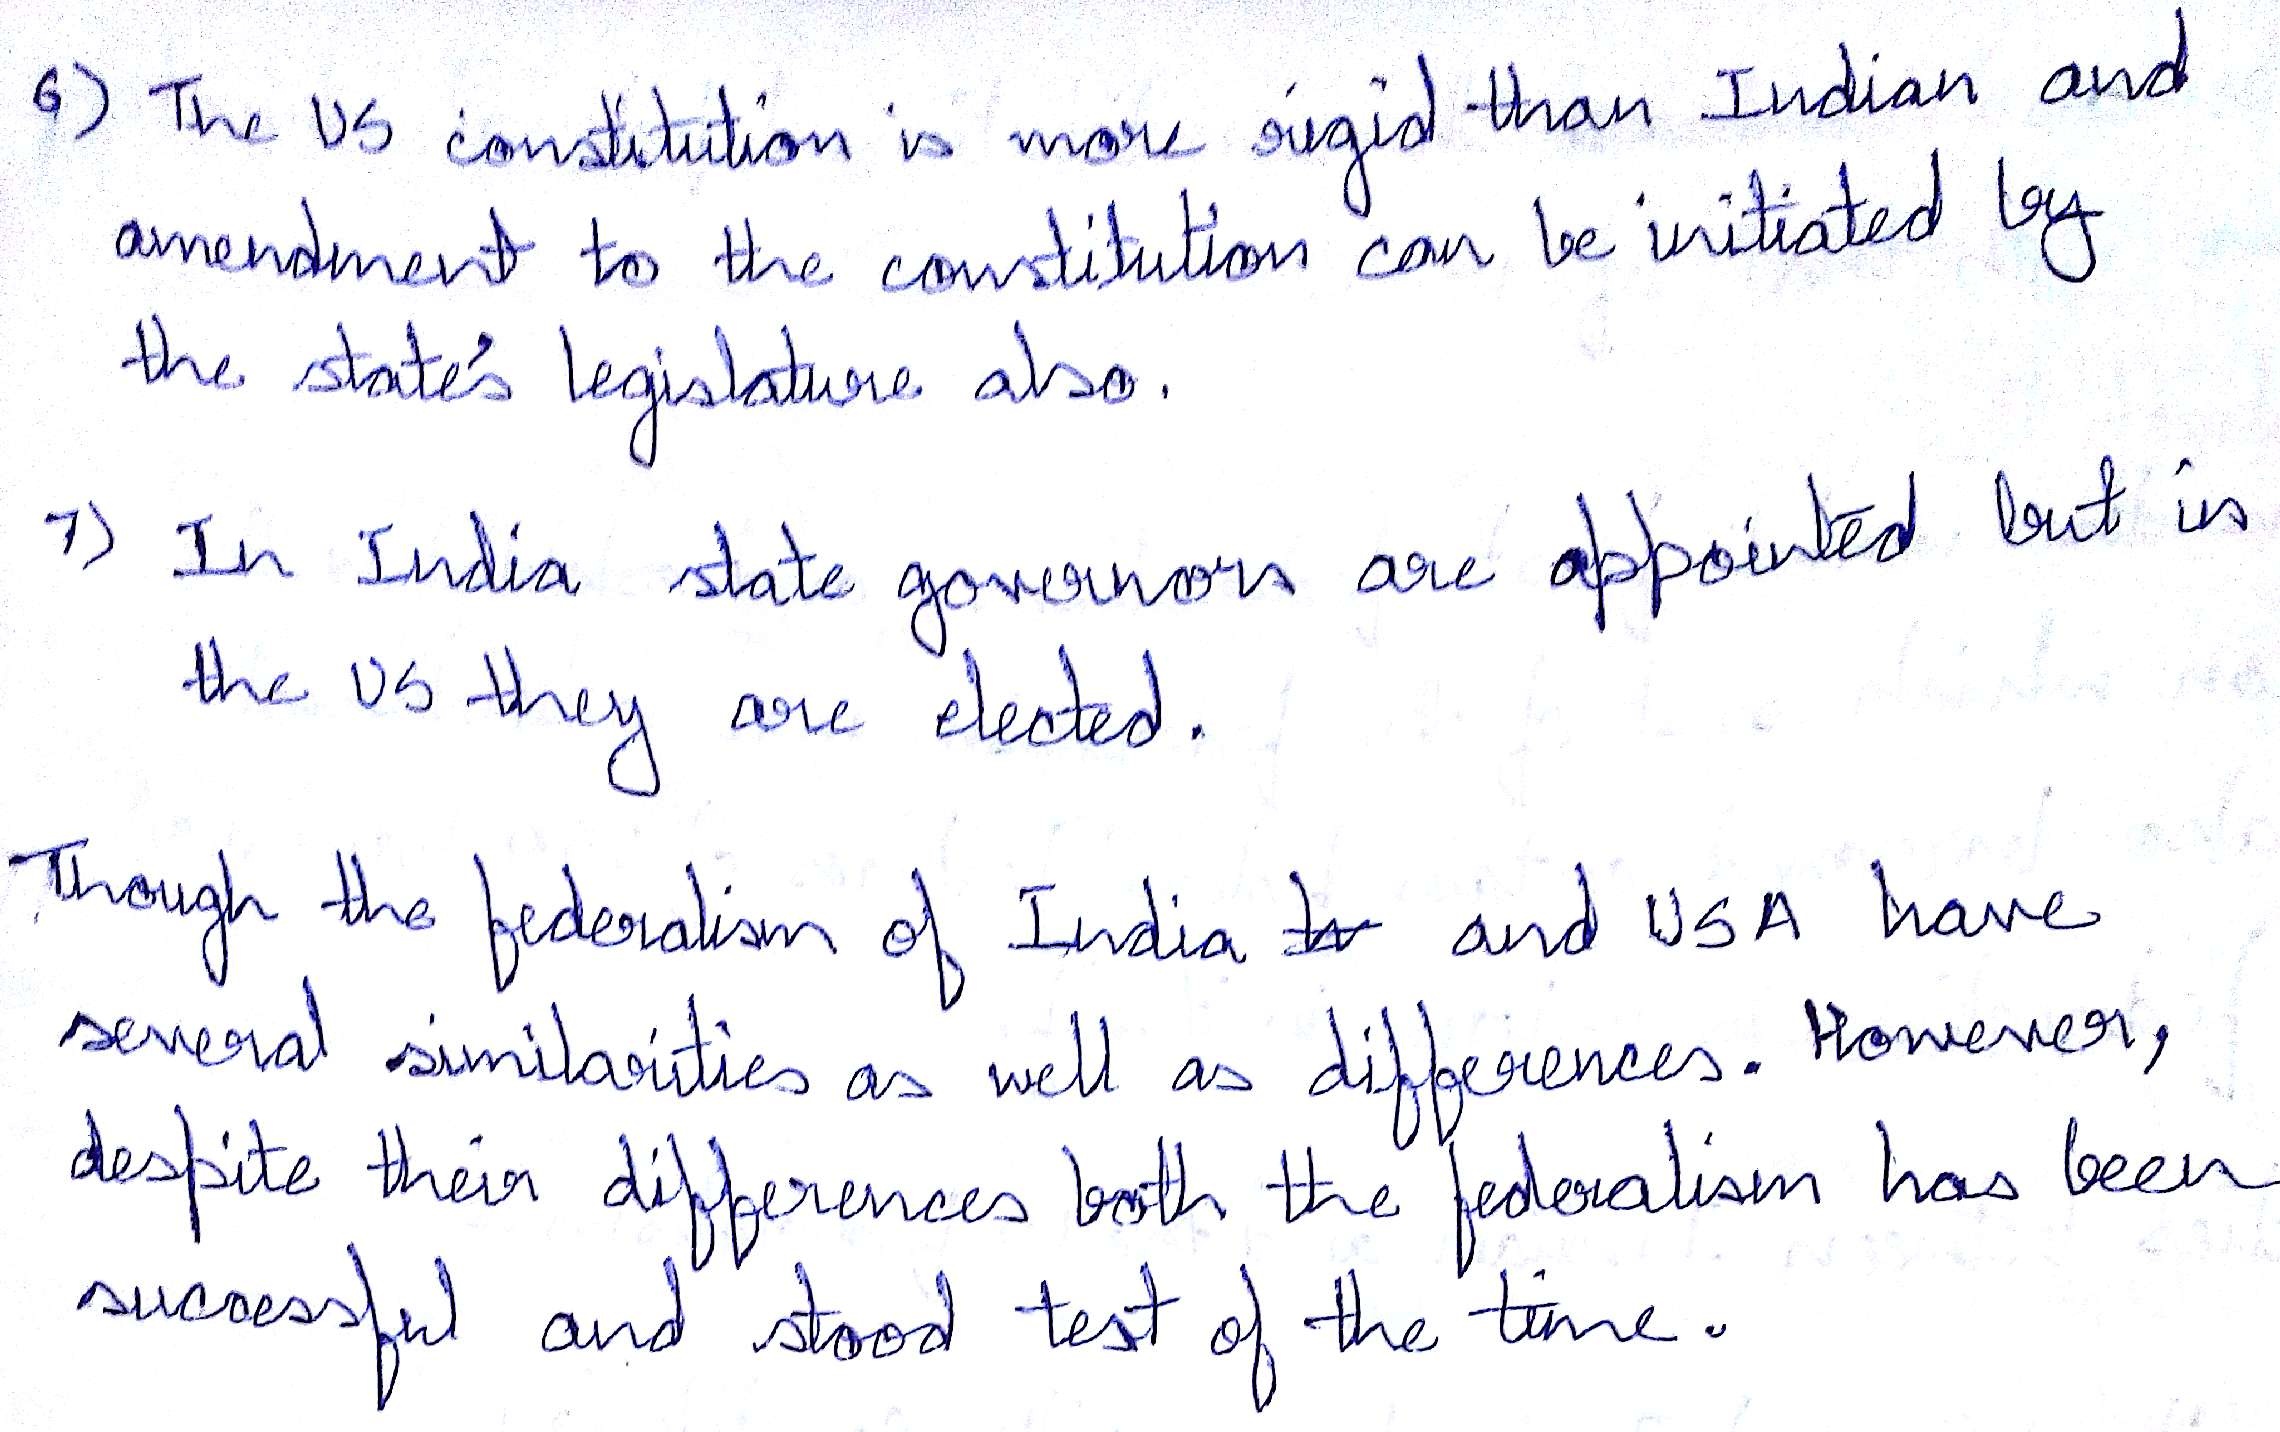 6) The US constitution is more rigid than Indian and
amendment to the constitution can be initiated by
the state's legislature also.
7) In India state governors are appointed but in
the US they are elected.
Though the federalism of India and USA have
several similarities as well as differences. However,
despite their differences both the federalism has been
successful and stood test of the time.